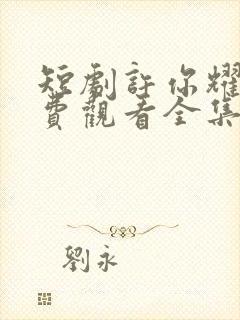 短劇許你耀
費觀看全集
劉永